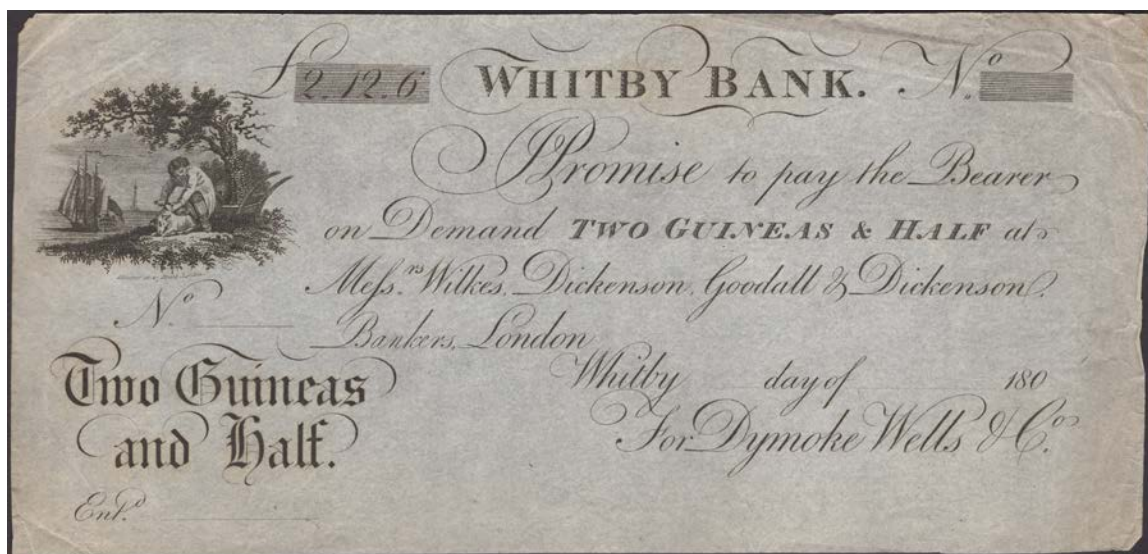 £2.12.6 WHITBY BANK. No.
I Promise to pay the Bearer
on Demand TWO GUINEAS & HALF at
Messrs. Wilkes, Dickenson, Goodall & Dickenson.
Bankers, London
No.
Whitby day of 180
Two Guineas
and Half.
For Dymoke Wells & Co.
Entd.